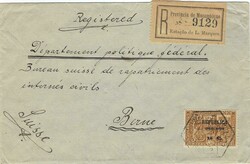 Registered
Provincia de Moçambique
R
Nº 9129
Estação de L. Marques
Département politique fédéral.
Bureau suisse de rapatriement des
internés civils
Berne
Suisse